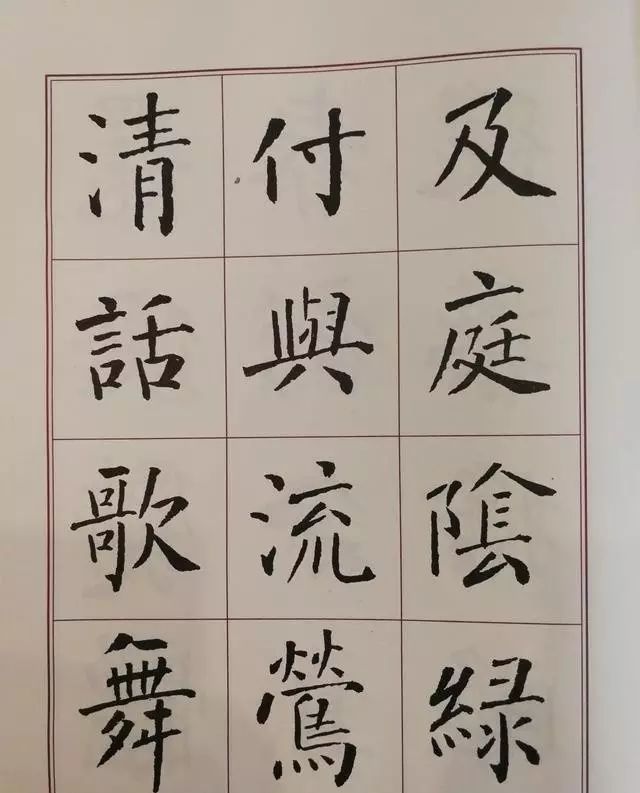 及庭陰綠
付與流鶯
清話歌舞